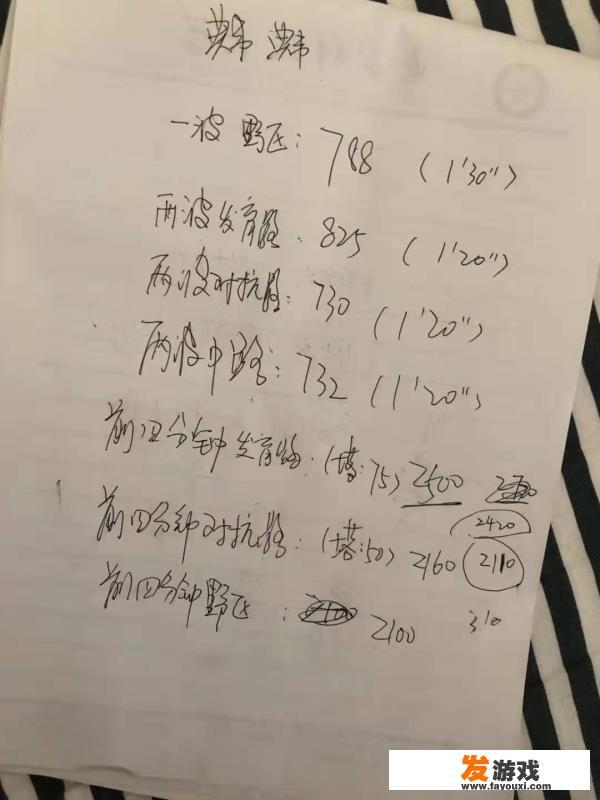 一波野区: 788 (1'30")
两波发育路: 825 (1'20")
两波对抗路: 730 (1'20")
两波中路: 732 (1'20")
前四分钟发育路: (塔:75) 2500
2420
前四分钟对抗路: (塔:50) 2160 2110
前四分钟野区: 2100 310
发游戏
www.fayouxi.com